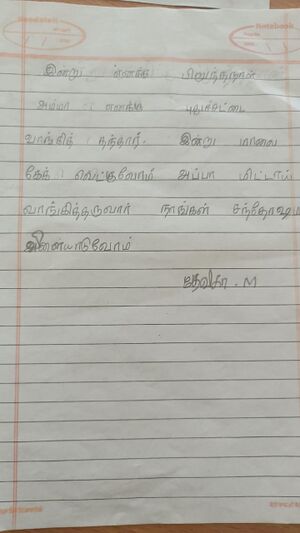 Notebook
இன்று எனக்கு பிறந்தநாள்
அம்மா எனக்கு புதுச்சட்டை
வாங்கித் தந்தார். இன்று மாலை
கேக் வெட்டுவோம் அப்பா மிட்டாய்
வாங்கித்தருவார் நாங்கள் சந்தோஷ
விளையாடுவோம்
தேவிகா . M